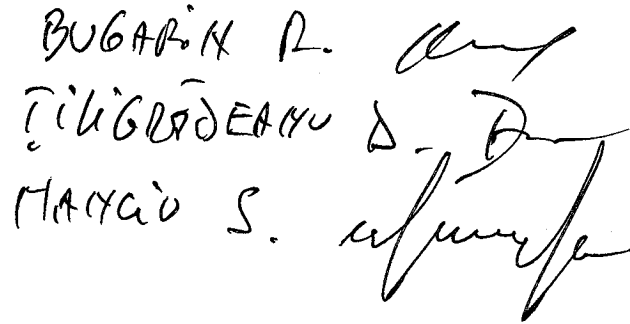 BUGARIN R.
ŢILIGRĂDEANU D.
MANCIU S.